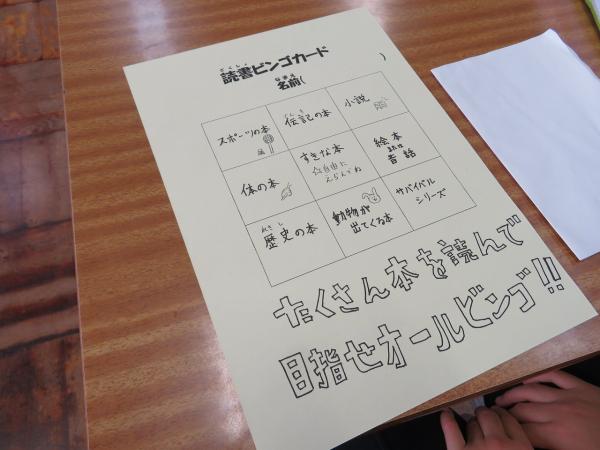 どくしょ
読書ビンゴカード
なまえ
名前( )
スポーツの本
でんき
伝記の本
小説
体の本
すきな本
☆自由に
えらんでね
絵本
または
昔話
れきし
歴史の本
動物が
出てくる本
サバイバル
シリーズ
たくさん本を読んで
目指せオールビンゴ!!